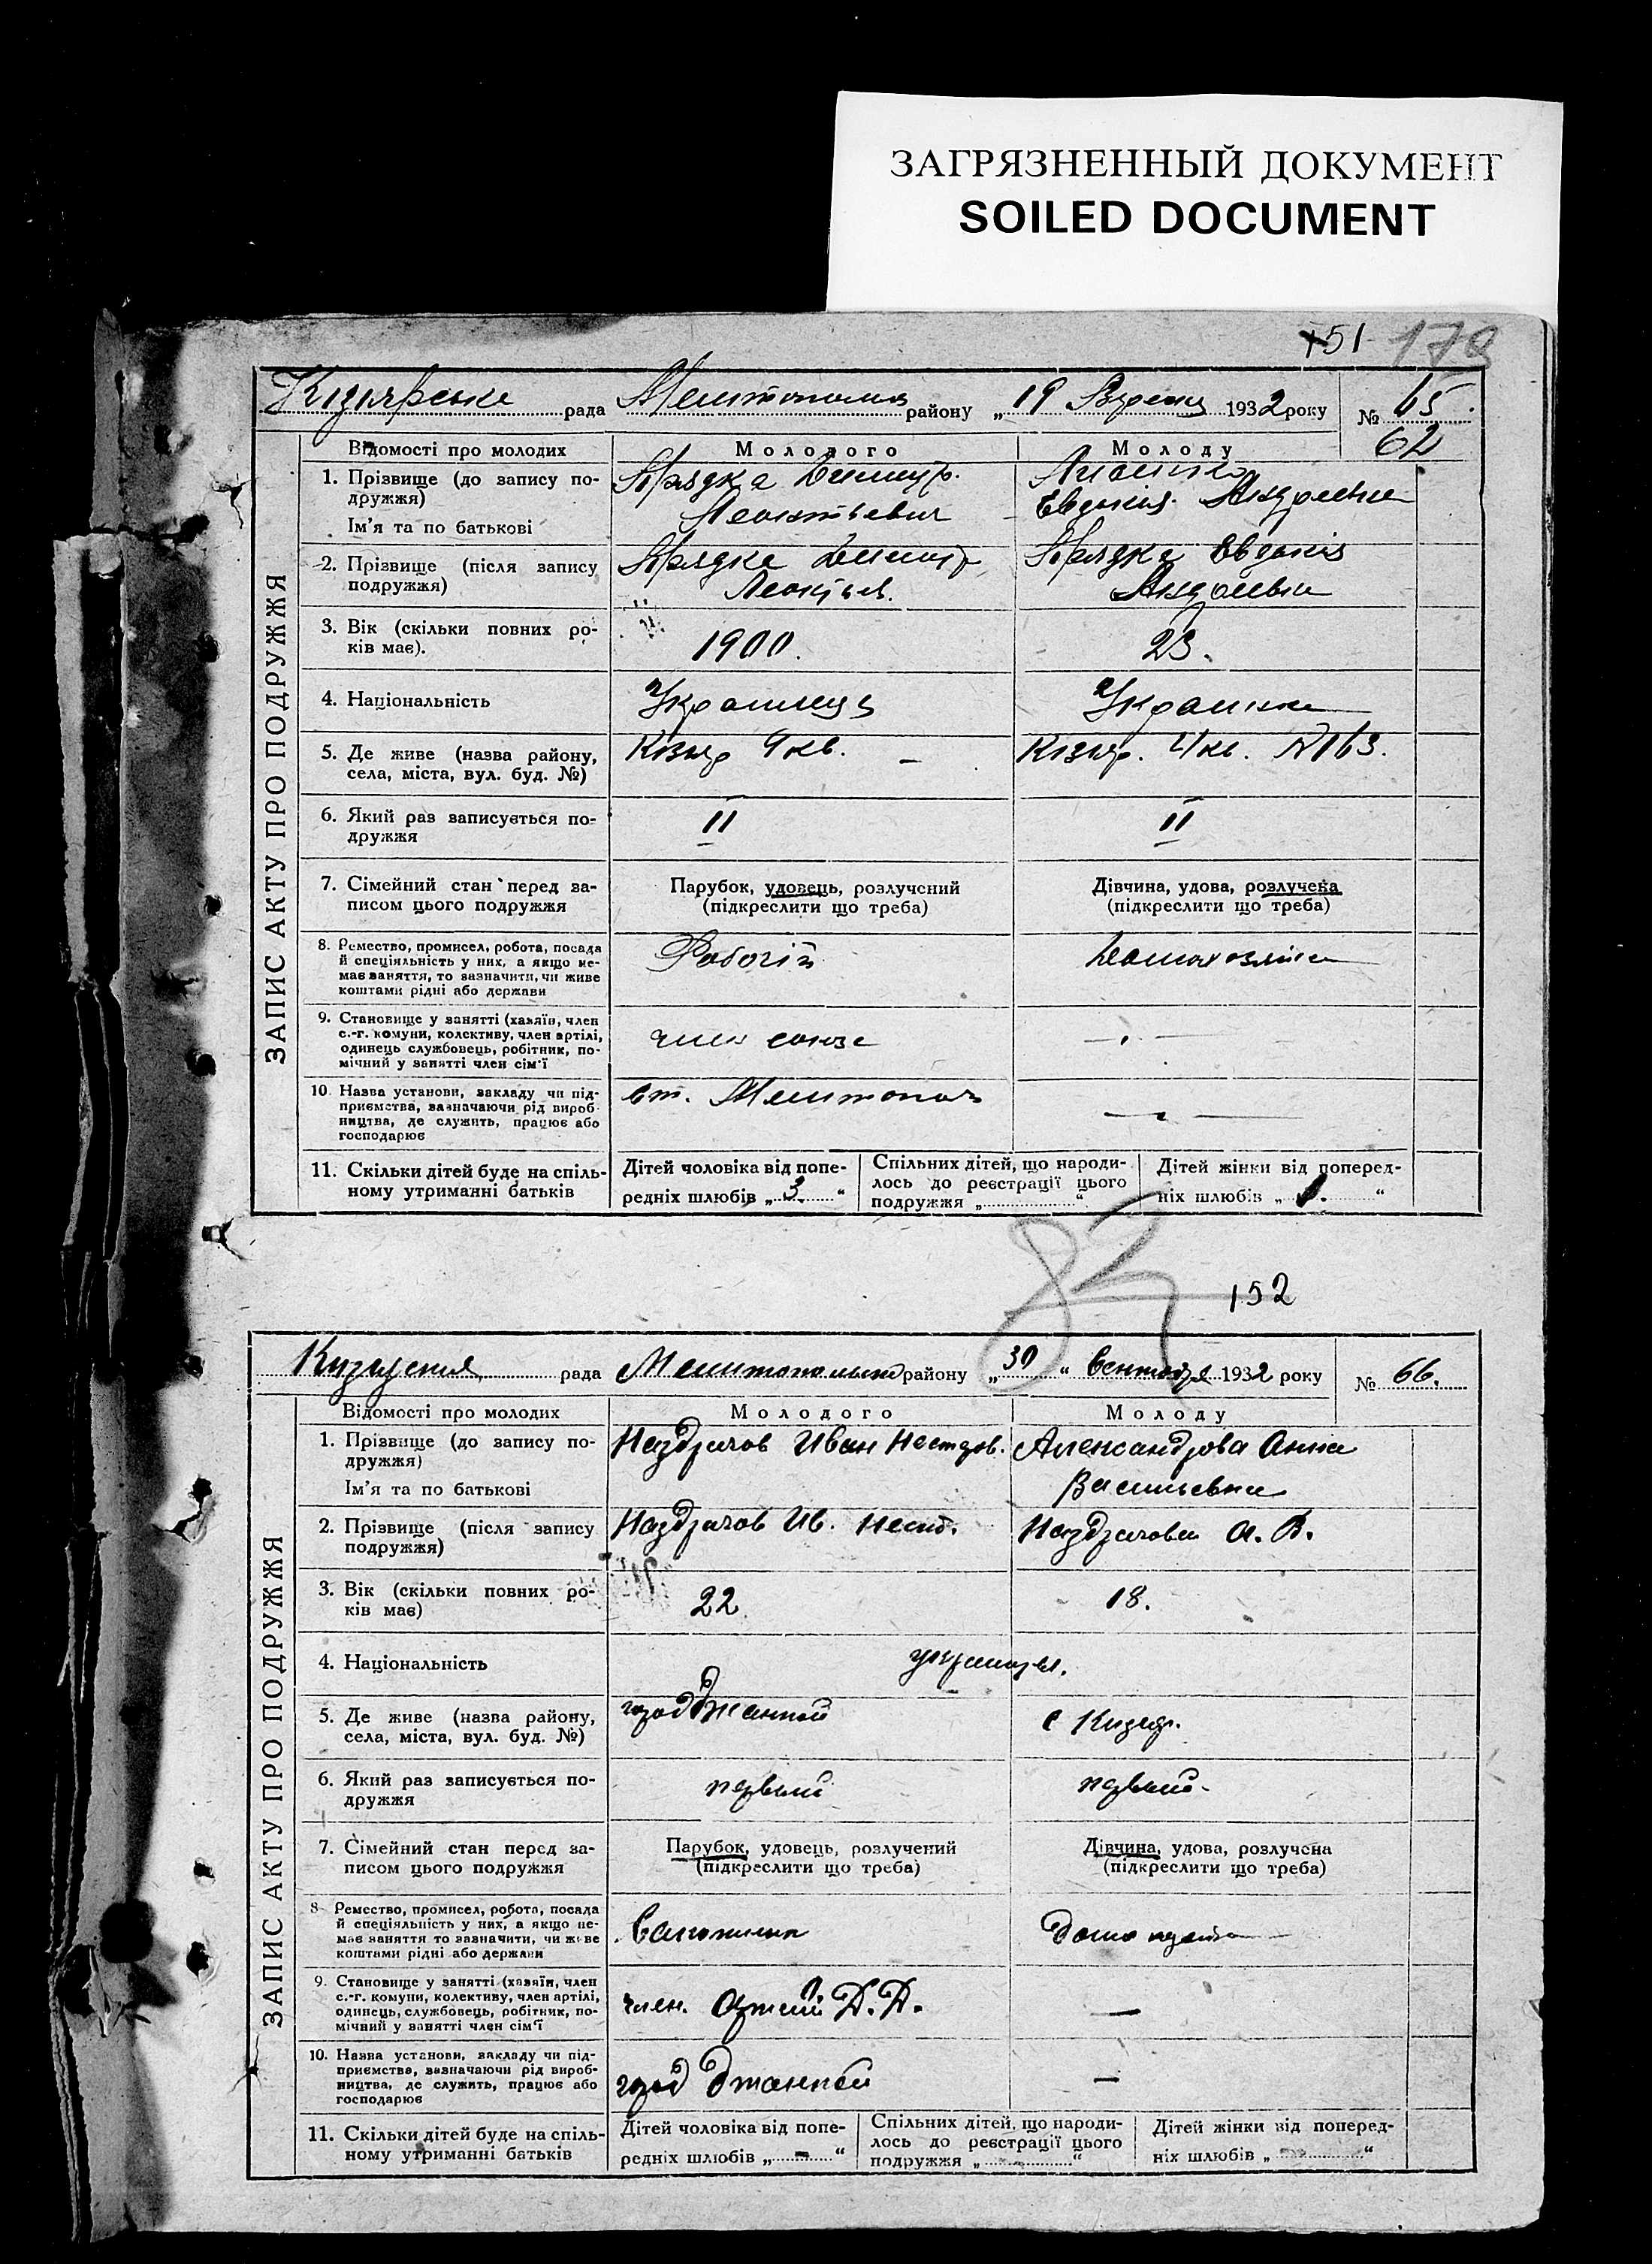 ЗАГРЯЗНЕННЫЙ ДОКУМЕНТ
SOILED DOCUMENT
151 179
Кизіярське рада Мелітополь району „19 Вересня 1932 року № 65.
62
ЗАПИС АКТУ ПРО ПОДРУЖЖЯ
Відомості про молодих Молодого Молоду
1. Прізвище (до запису по-
дружжя)
Ім'я та по батькові
Леонтьевич
Евдокия Андреевна
2. Прізвище (після запису
подружжя)
Евдокія
3. Вік (скільки повних ро-
ків має).
1900. 23.
4. Національність
Українець Українка
5. Де живе (назва району,
села, міста, вул. буд. №)
Кізіяр 4 кв. Кізіяр. 4 кв. №163.
6. Який раз записується по-
дружжя
II II
7. Сімейний стан перед за-
писом цього подружжя
Парубок, удовець, розлучений
(підкреслити що треба)
Дівчина, удова, розлучена
(підкреслити що треба)
8. Ремество, промисел, робота, посада
й спеціяльність у них, а якщо не-
має заняття, то зазначити, чи живе
коштами рідні або держави
Робочій Домохозяйка
9. Становище у занятті (хазяїн, член
с.-г. комуни, колективу, член артілі,
одинець службовець, робітник, по-
мічний у занятті член сім'ї
член союза
10. Назва установи, закладу чи під-
приємства, зазначаючи рід вироб-
ництва, де служить, працює або
господарює
ст. Мелитополь
11. Скільки дітей буде на спіль-
ному утриманні батьків
Дітей чоловіка від попе-
редніх шлюбів „ 3. “
Спільних дітей, що народи-
лось до реєстрації цього
подружжя „ “
Дітей жінки від поперед-
ніх шлюбів „ 1. “
152
рада Мелитопольск району „30“ Сентября 1932 року № 66.
ЗАПИС АКТУ ПРО ПОДРУЖЖЯ
Відомості про молодих Молодого Молоду
1. Прізвище (до запису по-
дружжя)
Ім'я та по батькові
Наздрачов Иван Нестров.
Александрова Анна
Васильевна
2. Прізвище (після запису
подружжя)
Наздрачов Ив. Нест. Наздрачова А. В.
3. Вік (скільки повних ро-
ків має)
22 18.
4. Національність
украинцы.
5. Де живе (назва району,
села, міста, вул. буд. №)
город Джанкой с Кизияр.
6. Який раз записується по-
дружжя
первый первый
7. Сімейний стан перед за-
писом цього подружжя
Парубок, удовець, розлучений
(підкреслити що треба)
Дівчина, удова, розлучена
(підкреслити що треба)
8 Ремество, промисел, робота, посада
й спеціяльність у них, а якщо не-
має заняття то зазначити, чи живе
коштами рідні або держави
Сапожник
9. Становище у занятті (хазяїн, член
с.-г. комуни, колективу, член артілі,
одинець, службовець, робітник, по-
мічний у занятті член сім'ї
член. Артели Д.Д.
10. Назва установи, закладу чи під-
приємства, зазначаючи рід вироб-
ництва, де служить, працює або
господарює
город Джанкой
11. Скільки дітей буде на спіль-
ному утриманні батьків
Дітей чоловіка від попе-
редніх шлюбів „ — “
Спільних дітей, що народи-
лось до реєстрації цього
подружжя „ “
Дітей жінки від поперед-
ніх шлюбів „ “